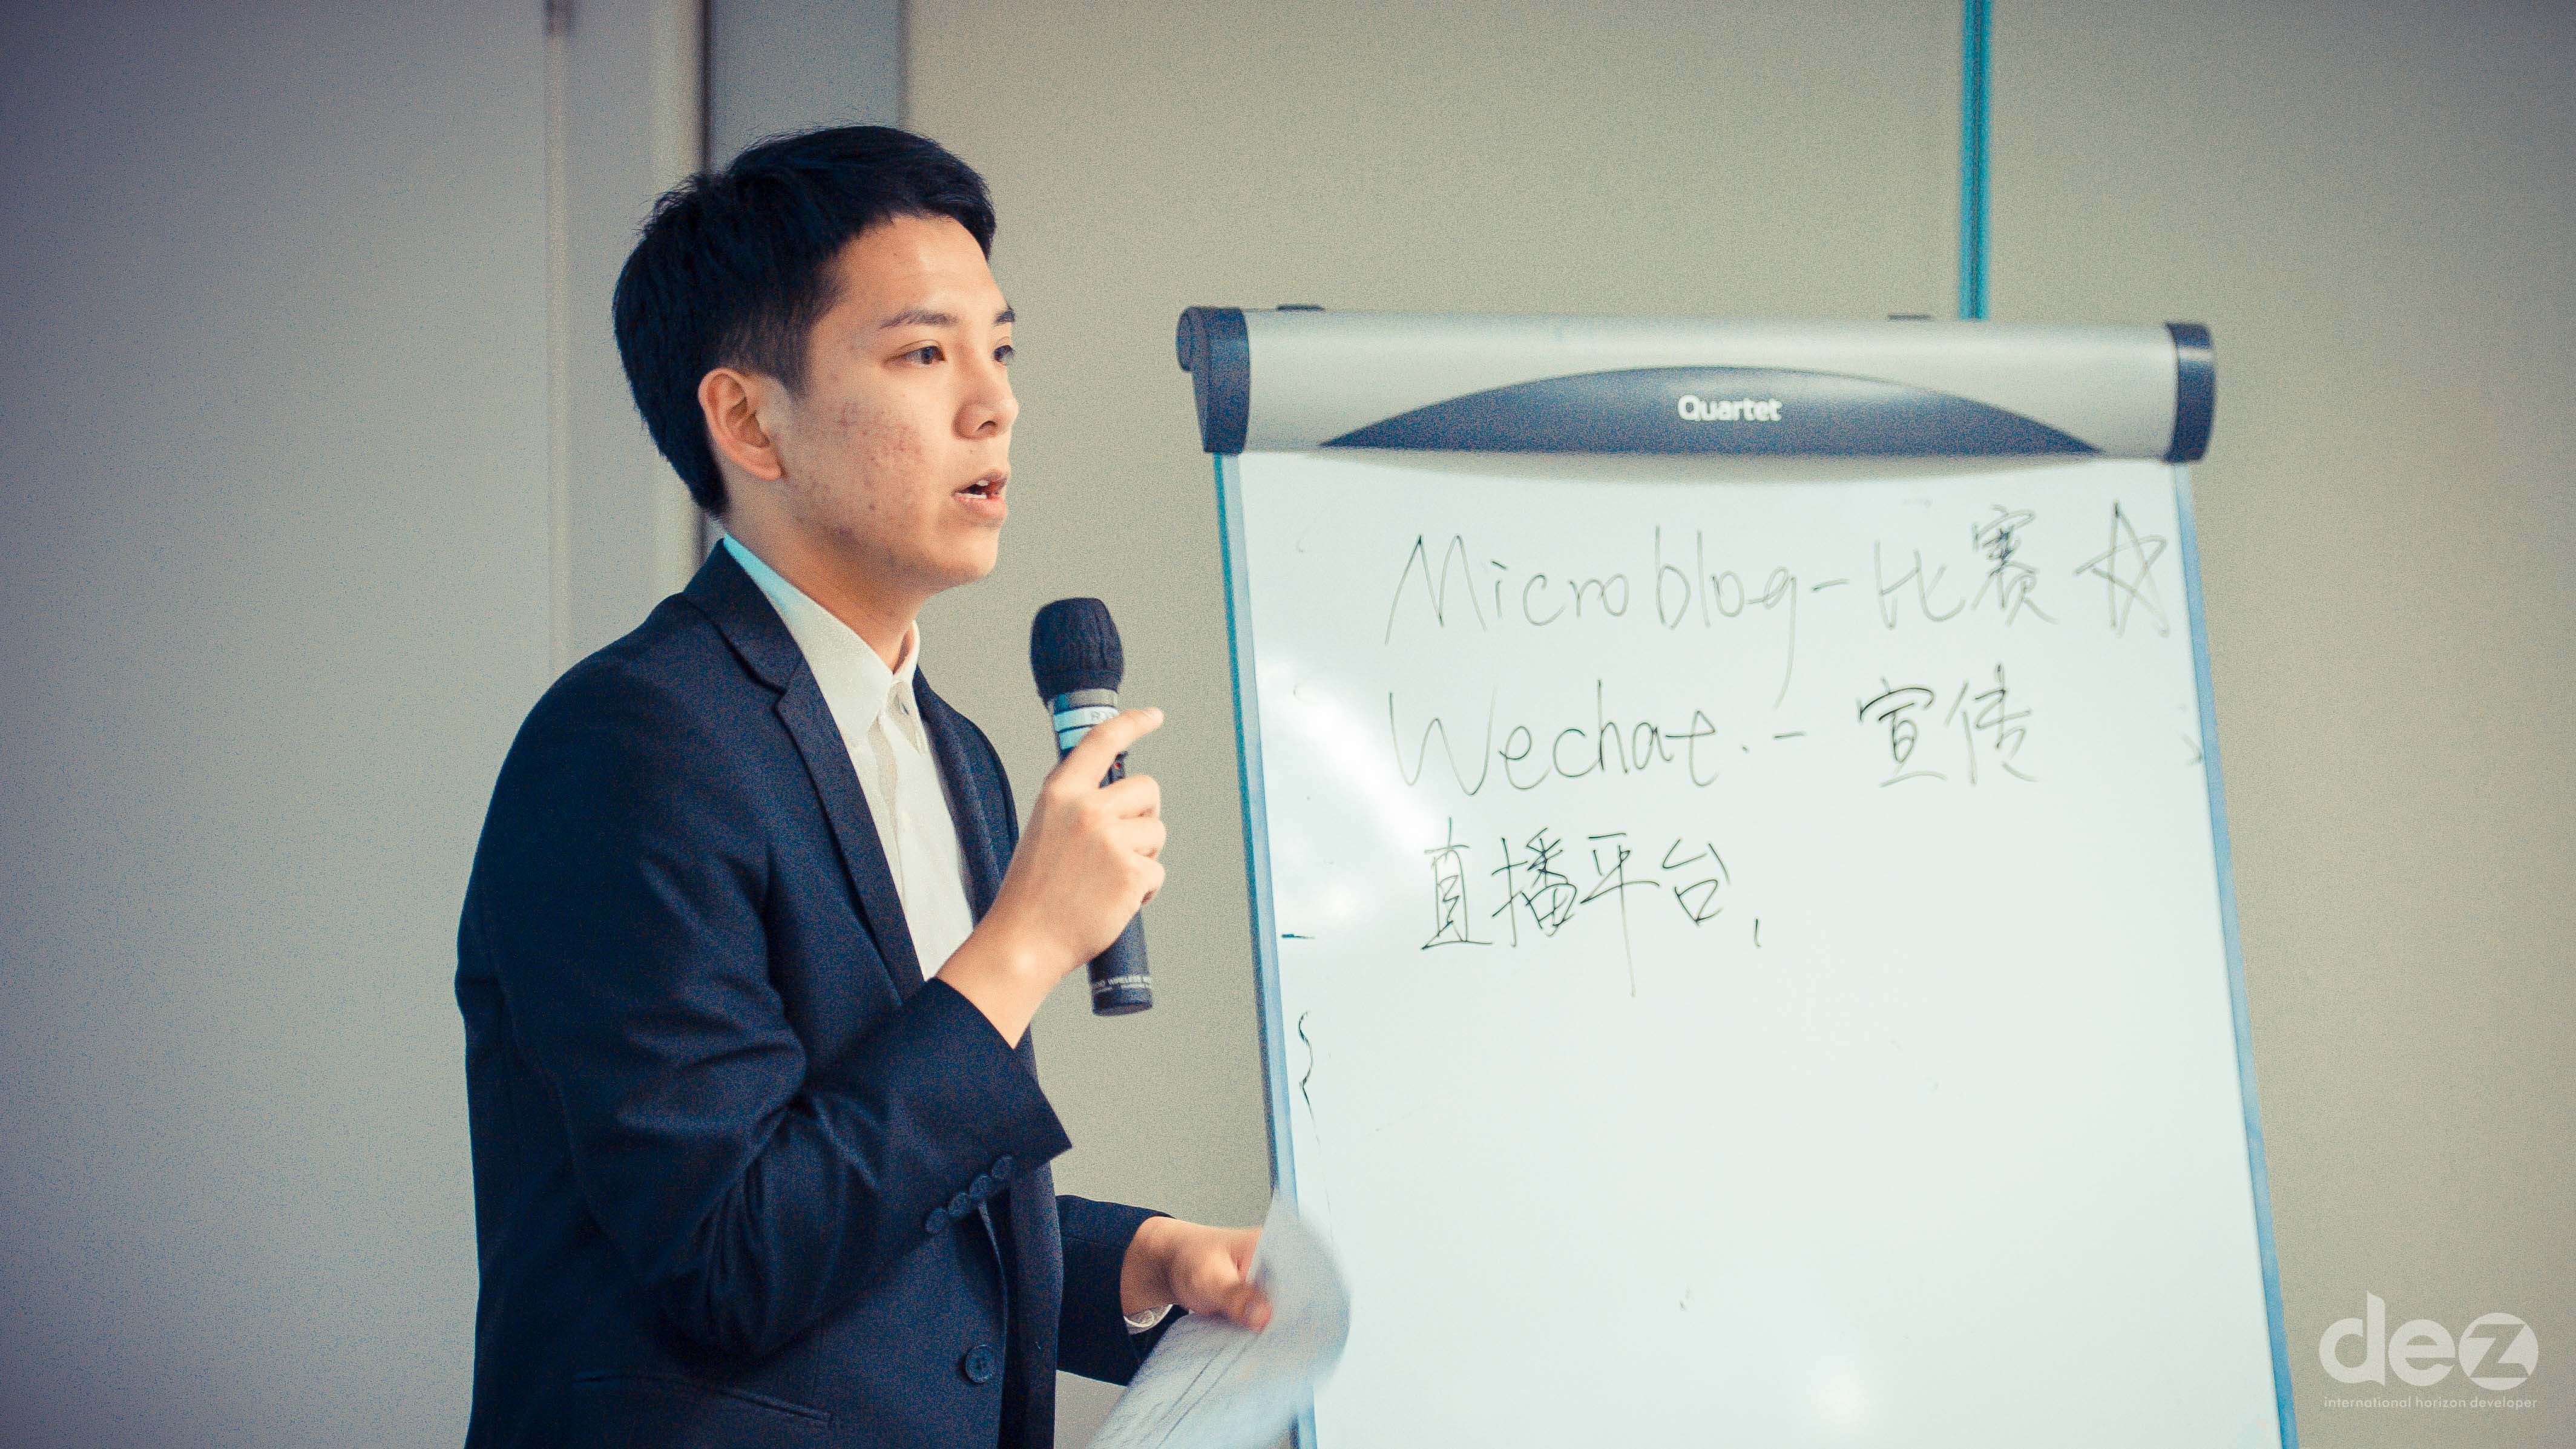 Quartet
Microblog - 比赛 ☆
Wechat. - 宣传
直播平台,
dez
international horizon developer